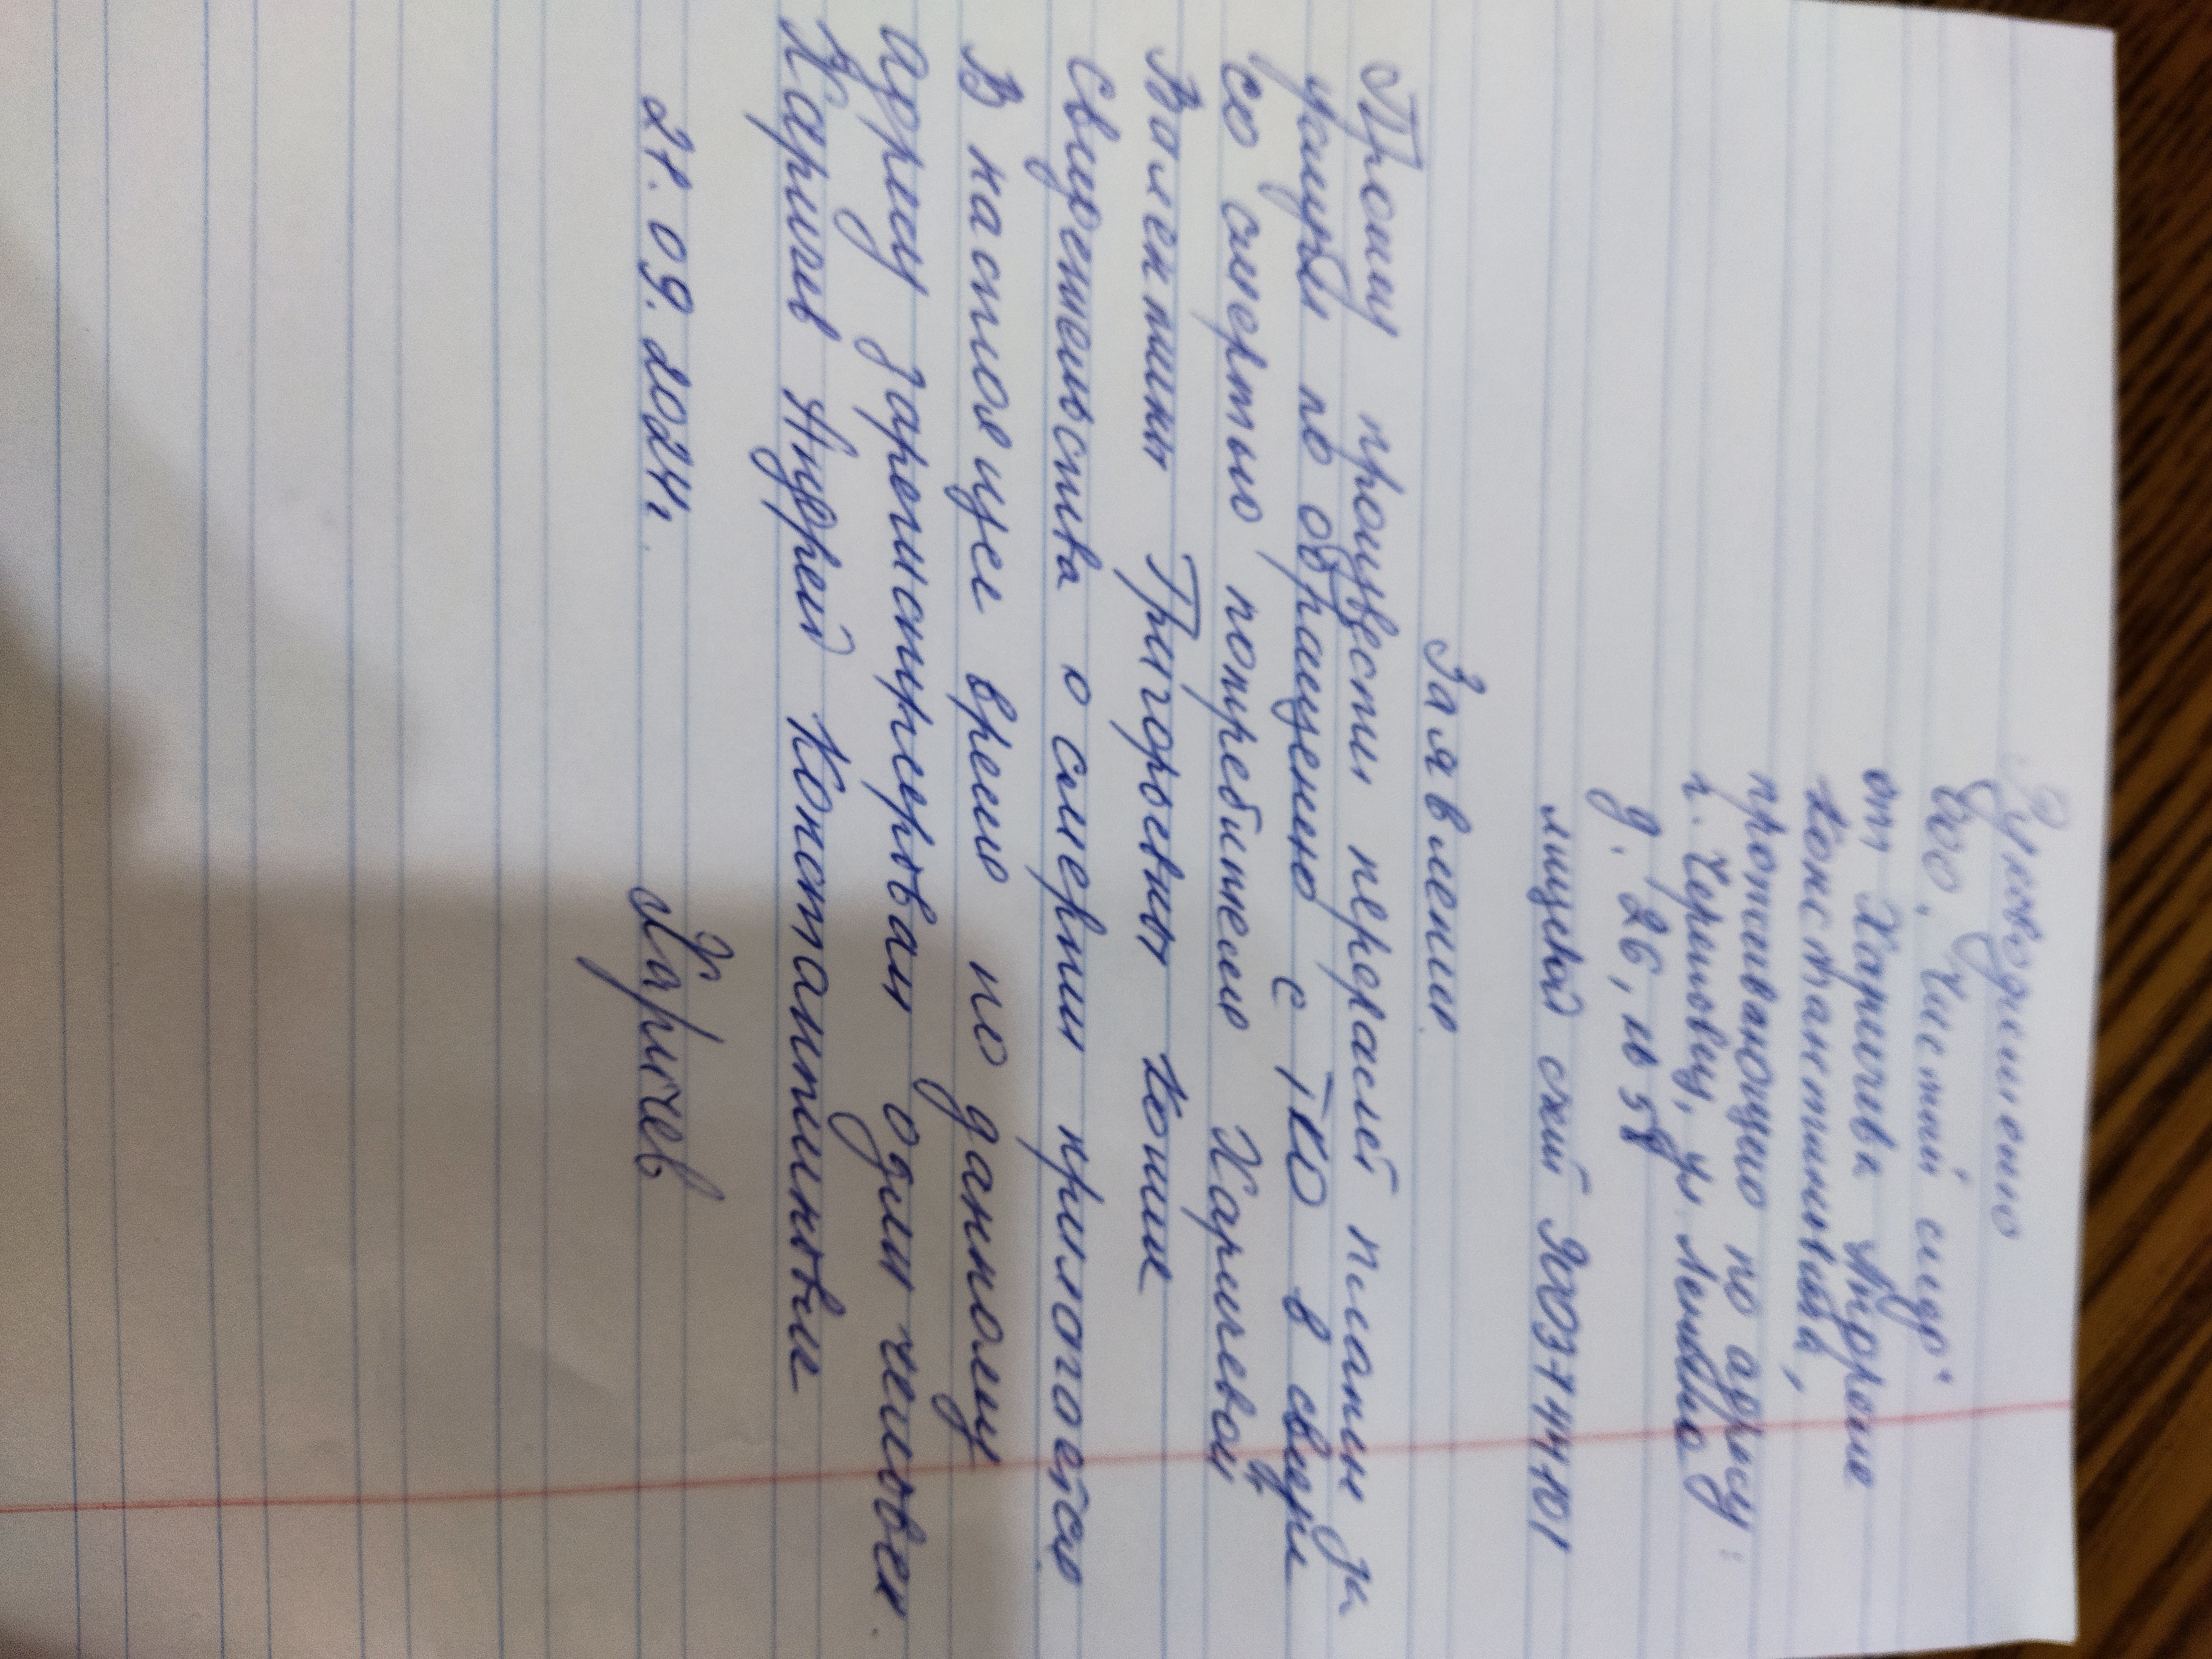 Руководителю
ООО "Чистый след"
от Харичева Андрея
Константиновича,
проживающего по адресу:
г. Череповец, ул Ленина
д. 26, кв 58
лицевой счёт
Заявление.
Прошу произвести перерасчёт платы за
услуги по обращению с ТКО в связи
со смертью потребителя Харичевой
Валентины Григорьевны Копия
свидетельства о смерти прилагается
В настоящее время по данному
адресу зарегистрирован один человек.
Харичев Андрей Константинович
21.09.2024г. Харичев